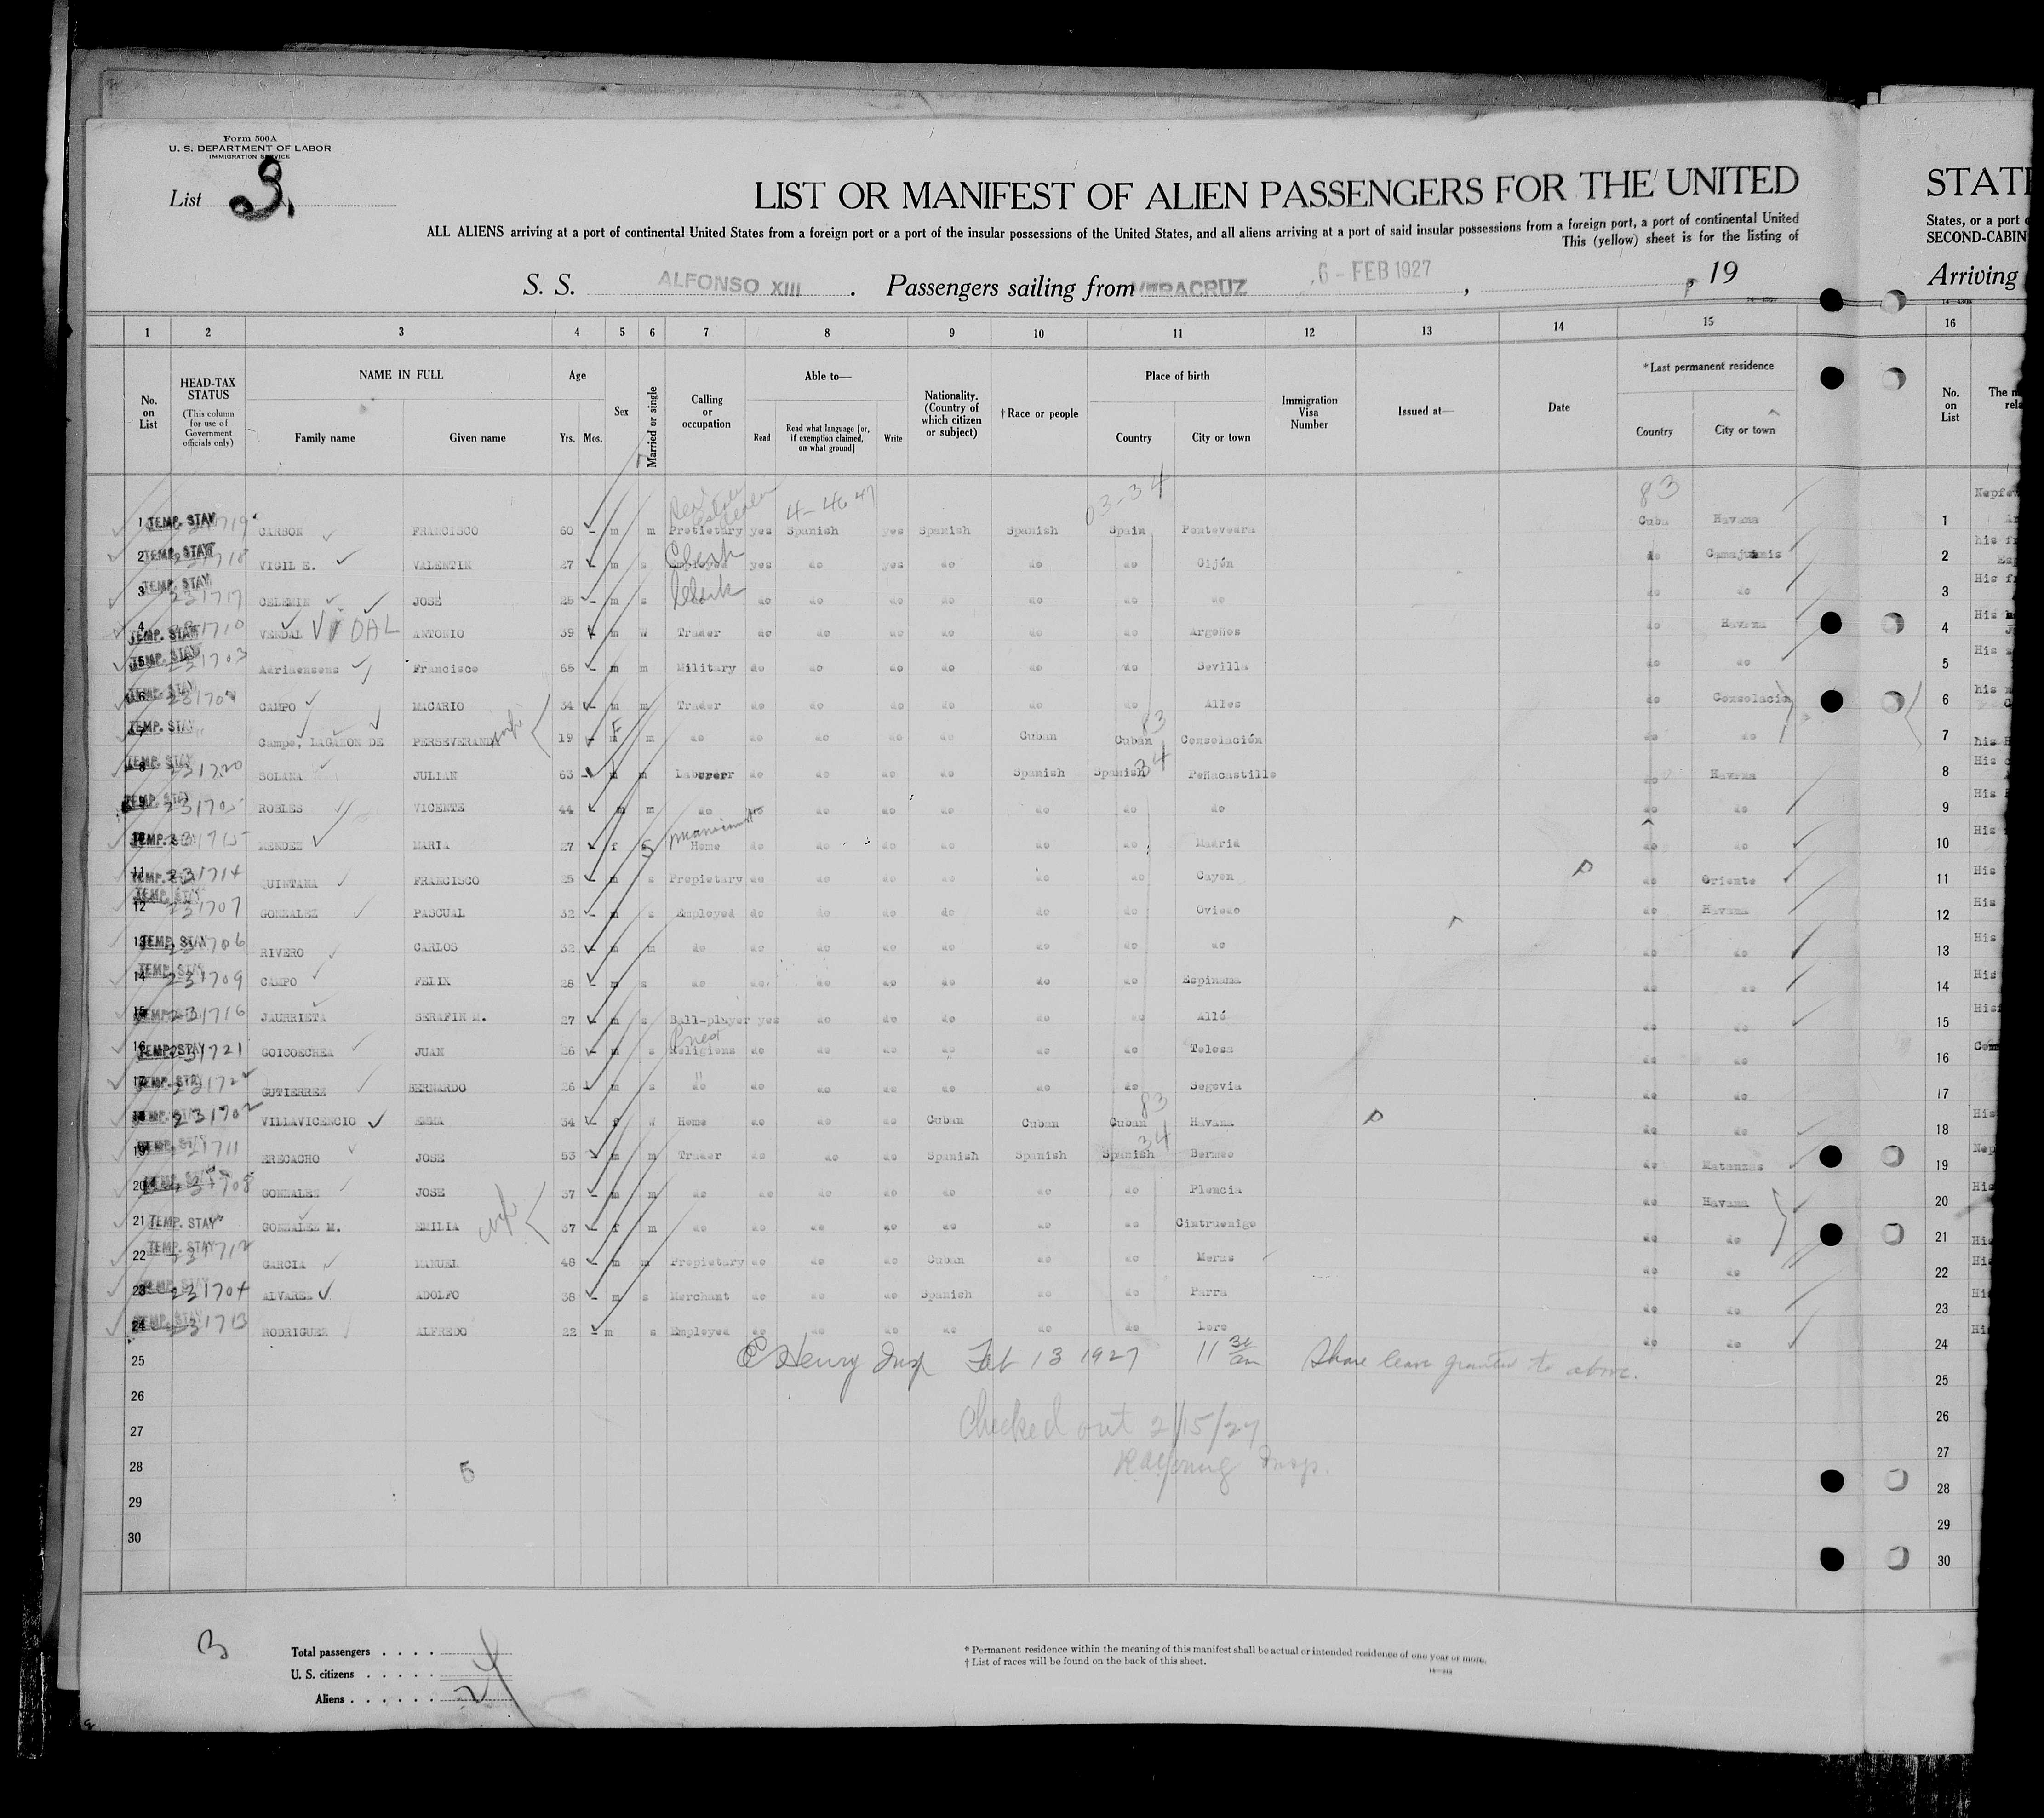 Form 500 A
U. S. DEPARTMENT OF LABOR
IMMIGRATION SERVICE
List 3.
LIST OR MANIFEST OF ALIEN PASSENGERS FOR THE UNITED
STATE
ALL ALIENS arriving at a port of continental United States from a foreign port or a port of the insular possessions of the United States, and all aliens arriving at a port of said insular possessions from a foreign port, a port of continental United
States, or a port
This (yellow) sheet is for the listing of
SECOND-CABIN
S. S. ALFONSO XIII. Passengers sailing from VERACRUZ 6 - FEB 1927, 19
Arriving
1 2 3 4 5 6 7 8 9 10 11 12 13 14 15 16
No. on List
HEAD-TAX STATUS
(This column for use of Government officials only)
NAME IN FULL
Family name
Given name
Age
Yrs. Mos.
Sex
Married or single
Calling or occupation
Able to—
Read
Read what language [or, if exemption claimed, on what ground]
Write
Nationality. (Country of which citizen or subject)
† Race or people
Place of birth
Country
City or town
Immigration Visa Number
Issued at—
Date
* Last permanent residence
Country
City or town
No. on List
Real Estate Dealer 4-46 47 03-34 83
1 TEMP. STAY CARBON FRANCISCO 60 m m Protietary yes Spanish yes Spanish Spanish Spain Pontevedra Cuba Havana 1
2 TEMP. STAY VIGIL E. VALENTIN 27 m s Employed Clerk yes do yes do do do Gijón do Camajuanis 2
3 TEMP. STAY 231717 CELEMIN JOSE 25 m s do Clerk do do do do do do do do do 3
4 TEMP. STAY 231710 VENDAL VIDAL ANTONIO 39 m W Trader do do do do do do Argoños do Havana 4
5 TEMP. STAY 231703 Adriaensens Francisco 65 m m Military do do do do do do Sevilla do do 5
6 TEMP. STAY CAMPO MACARIO 34 m m Trader do do do do do do Alles do Consolacin 6
7 TEMP. STAY Campo, LAGAZON DE PERSEVERANDA wife 19 F m do do do do do Cuban Cuban 83 Consolación do do 7
8 TEMP. STAY 231720 SOLANA JULIAN 63 m m Laborerr do do do do Spanish Spanish 34 Peñacastillo do Havana 8
9 TEMP. STAY 231705 ROBLES VICENTE 44 m m do no do do do do do do do do 9
10 TEMP. STAY 231715 MENDEZ MARIA 27 f S Home do do do do do do Madrid do do 10
11 TEMP. STAY 231714 QUINTANA FRANCISCO 25 m s Propietary do do do do do do Cayon do Oriente 11
12 TEMP. STAY 231707 GONZALEZ PASCUAL 32 m s Employed do do do do do do Oviedo do Havana 12
13 TEMP. STAY 231706 RIVERO CARLOS 32 m m do do do do do do do do do do 13
14 TEMP. STAY 231709 CAMPO FELIX 28 m s do do do do do do do Espinama do do 14
15 TEMP. STAY 231716 JAURRIETA SERAFIN M. 27 m s Ball-player yes do do do do do Alló do do 15
16 TEMP. STAY 231721 GOICOECHEA JUAN 26 m s Religions Priest do do do do do do Tolosa do do 16
17 TEMP. STAY 231722 GUTIERREZ BERNARDO 26 m s do " do do do do do do Segovia do do 17
18 TEMP. STAY 231702 VILLAVICENCIO EMMA 34 f W Home do do do Cuban Cuban Cuban 83 Havana do do 18
19 TEMP. STAY 231711 ERECACHO JOSE 53 m m Trader do do do Spanish Spanish Spanish 34 Bermeo do Matanzas 19
20 TEMP. STAY 231708 GONZALEZ JOSE 37 m m do do do do do do do Plencia do Havana 20
21 TEMP. STAY GONZALEZ M. EMILIA wife 37 f m do do do do do do do Cintruenigo do do 21
22 TEMP. STAY 231712 GARCIA MANUEL 48 m m Propietary do do do Cuban do do Meras do do 22
23 TEMP. STAY 231704 ALVAREZ ADOLFO 38 m s Merchant do do do Spanish do do Parra do do 23
24 TEMP. STAY 231713 RODRIGUEZ ALFREDO 22 m s Employed do do do do do do Loro do do 24
25 Henry Insp Feb 13 1927 11 30 am Shore leave granted to above. 25
26 Checked out 2/15/27 26
27 Young Insp. 27
28 5 28
29 29
30 30
3
Total passengers
U. S. citizens
Aliens 24
* Permanent residence within the meaning of this manifest shall be actual or intended residence of one year or more.
† List of races will be found on the back of this sheet.